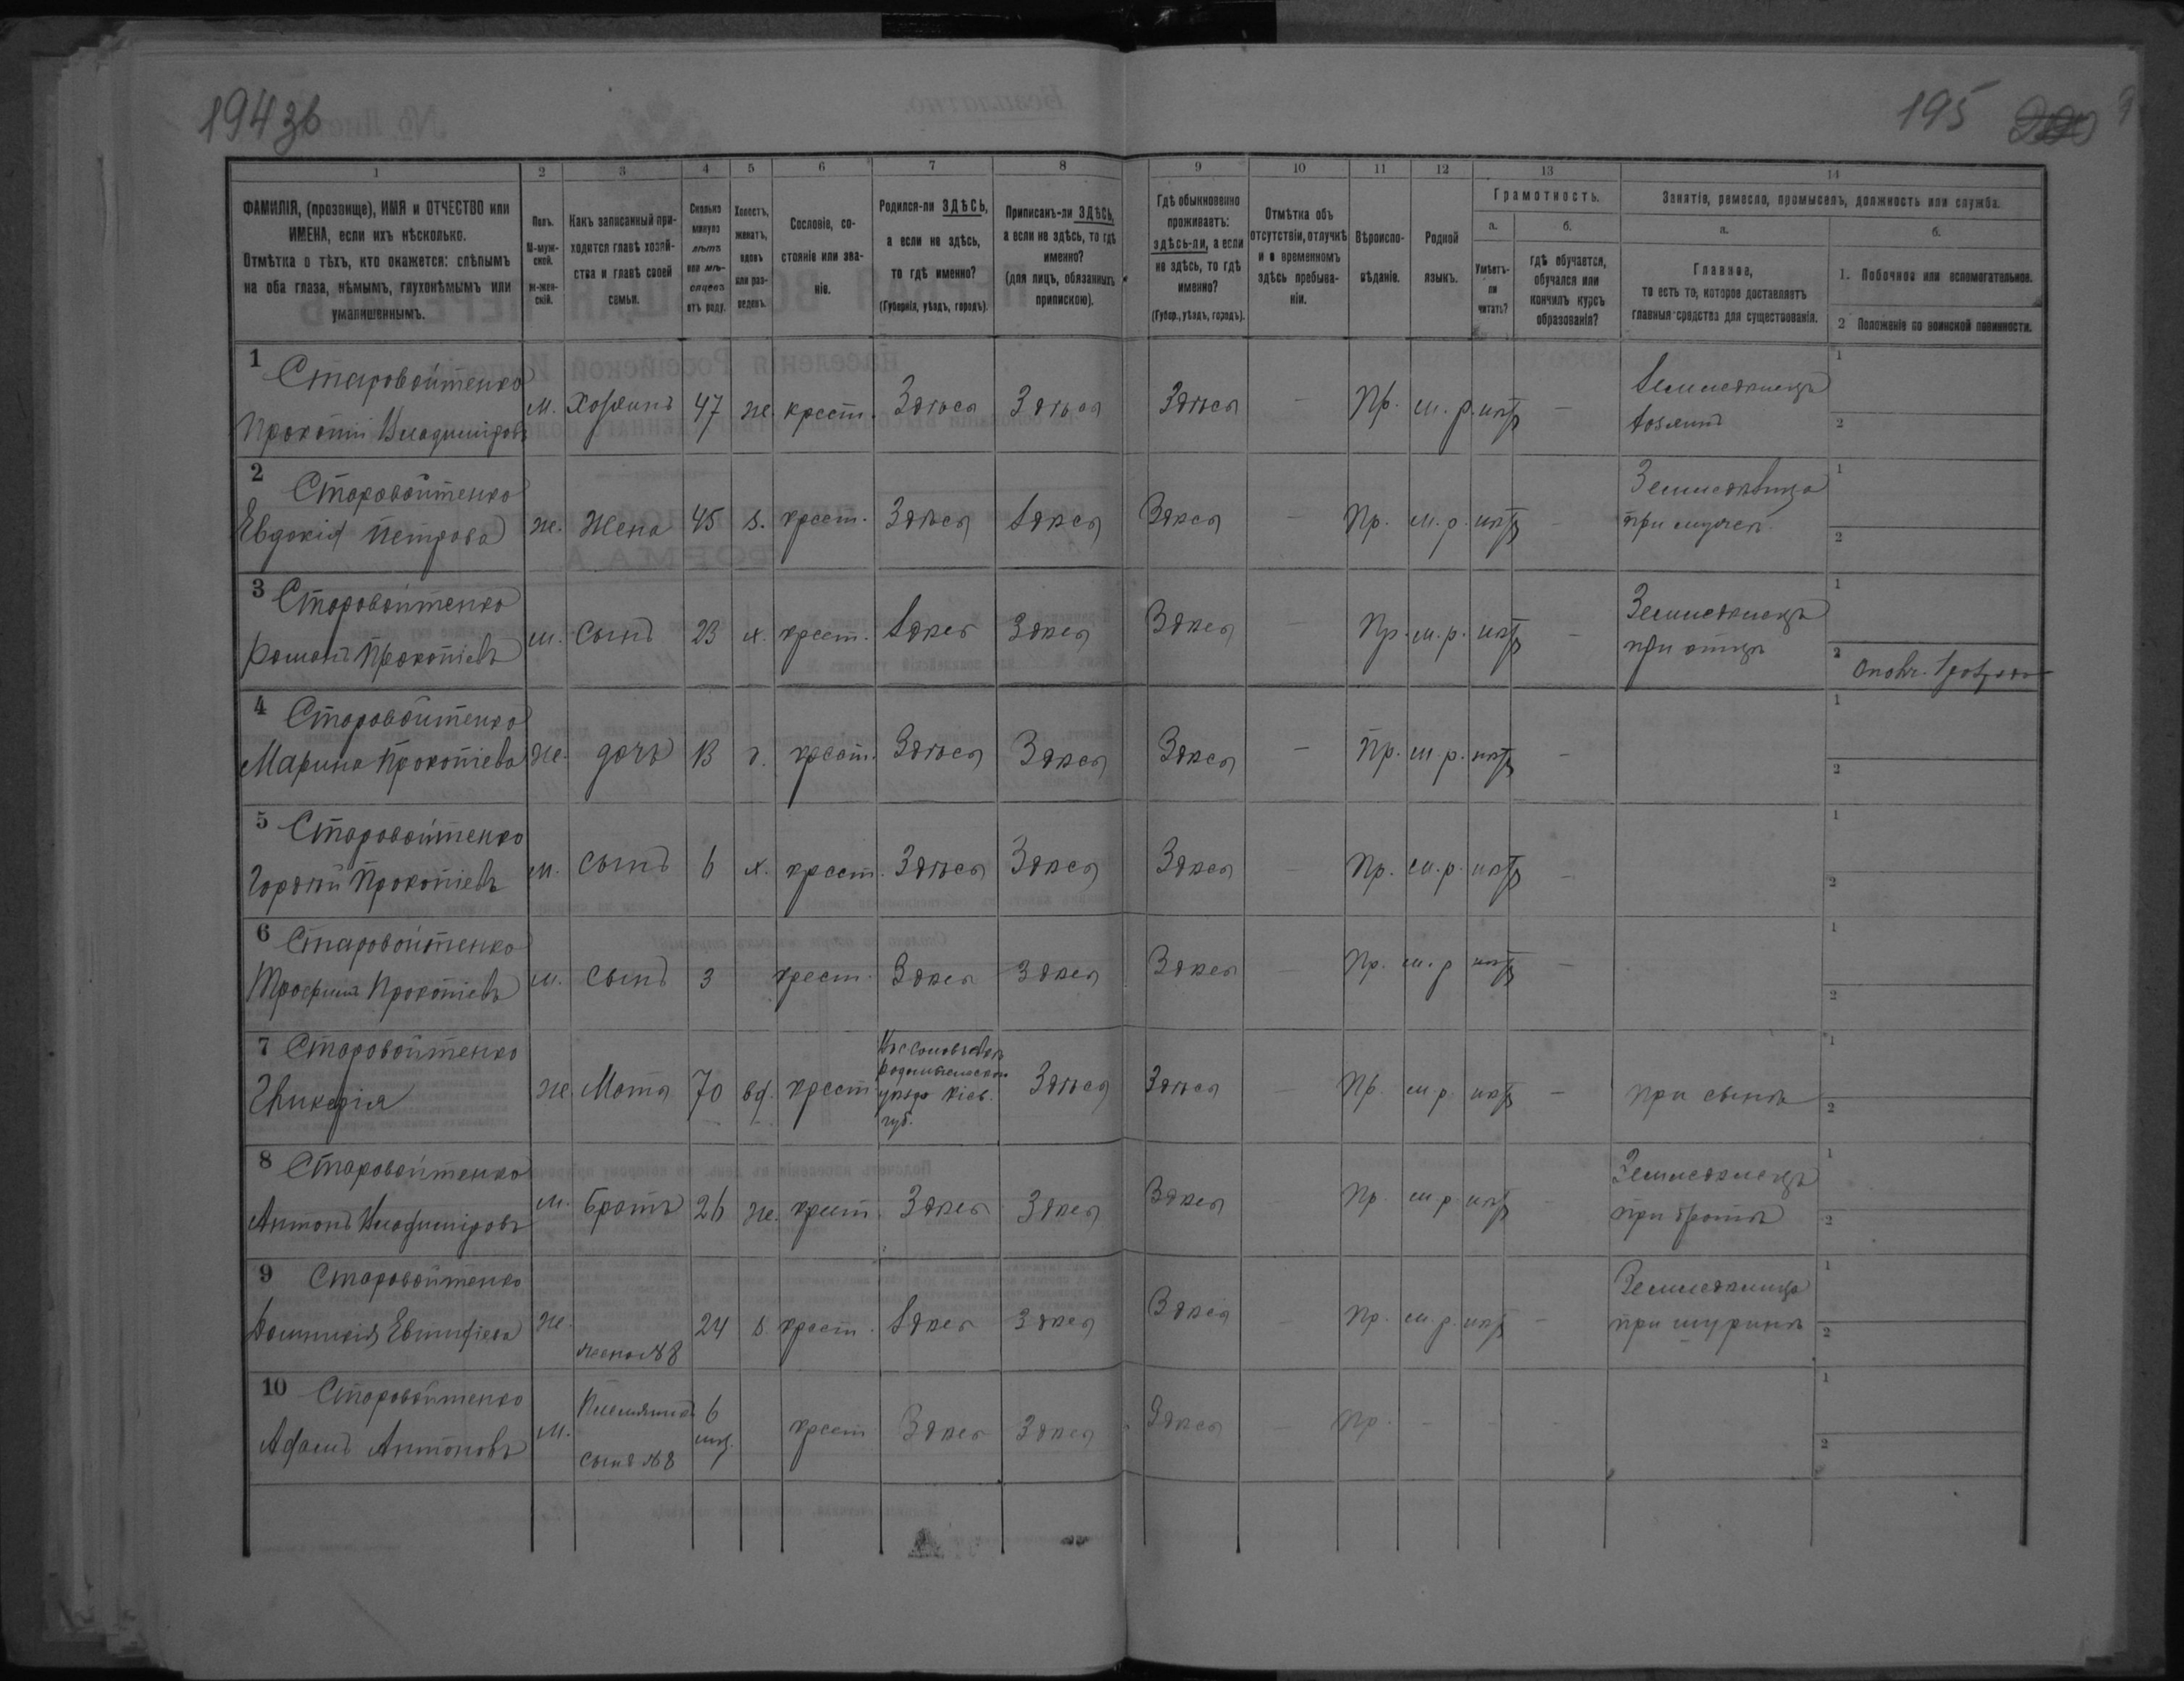 194 зв
195
1
2
3
4
5
6
7
8
9
10
11
12
13
14
ФАМИЛІЯ, (прозвище), ИМЯ и ОТЧЕСТВО или
ИМЕНА, если ихъ нѣсколько.
Отмѣтка о тѣхъ, кто окажется: слѣпымъ
на оба глаза, нѣмымъ, глухонѣмымъ или
умалишеннымъ.
Полъ.
М-муж-
ской.
ж-жен-
скій.
Какъ записанный при-
ходится главѣ хозяй-
ства и главѣ своей
семьи.
Сколько
минуло
лѣтъ
или мѣ-
сяцевъ
отъ роду.
Холостъ,
женатъ,
вдовъ
или раз-
веденъ.
Сословіе, со-
стояніе или зва-
ніе.
Родился-ли ЗДѢСЬ,
а если не здѣсь,
то гдѣ именно?
(Губернія, уѣздъ, городъ).
Приписанъ-ли ЗДѢСЬ,
а если не здѣсь, то гдѣ
именно?
(для лицъ, обязанныхъ
припискою).
Гдѣ обыкновенно
проживаетъ:
здѣсь-ли, а если
не здѣсь, то гдѣ
именно?
(Губер., уѣздъ, городъ).
Отмѣтка объ
отсутствіи, отлучкѣ
и о временномъ
здѣсь пребыва-
ніи.
Вѣроиспо-
вѣданіе.
Родной
языкъ.
Грамотность.
а.
Умѣетъ-
ли
читать?
б.
гдѣ обучается,
обучался или
кончилъ курсъ
образованія?
Занятіе, ремесло, промыселъ, должность или служба.
а.
Главное,
то есть то, которое доставляетъ
главныя средства для существованія.
б.
1. Побочное или вспомогательное.
2 Положеніе по воинской повинности.
1 Старовойтенко
Прокопій Владиміровъ м. Хозяинъ 47 же. крест. Здѣсь Здѣсь Здѣсь - Пр. м. р. нѣтъ - Земледѣлецъ
хозяинъ
1
2
2 Старовойтенко
Евдокія Петрова же. Жена 45 з. крест. Здѣсь Здѣсь Здѣсь - Пр. м. р. нѣтъ - Земледѣлица
при мужѣ
1
2
3 Старовойтенко
Романъ Прокопіевъ м. сынъ 23 х. крест. Здѣсь Здѣсь Здѣсь - Пр. м. р. нѣтъ - Земледѣлецъ
при отцѣ
1
2
4 Старовойтенко
Марина Прокопіева же. дочь 13 д. крест. Здѣсь Здѣсь Здѣсь - Пр. м. р. нѣтъ -
1
2
5 Старовойтенко
Гордѣй Прокопіевъ м. сынъ 6 х. крест. Здѣсь Здѣсь Здѣсь - Пр. м. р. нѣтъ -
1
2
6 Старовойтенко
Трофимъ Прокопіевъ м. сынъ 3 крест. Здѣсь Здѣсь Здѣсь - Пр. м. р нѣтъ -
1
2
7 Старовойтенко
же. Мать 70 вд. крест
Радомысльскомъ
уѣздѣ Кіев.
губ.
Здѣсь Здѣсь - Пр. м р нѣтъ - при сынѣ
1
2
8 Старовойтенко
Антонъ Владиміровъ м. братъ 26 же. крест. Здѣсь Здѣсь Здѣсь - Пр. м р. нѣтъ - Земледѣлецъ
при братѣ
1
2
9 Старовойтенко
Домникія же. жена № 8 24 з. крест. Здѣсь Здѣсь Здѣсь - Пр. м. р. нѣтъ - Земледѣлица
при шуринѣ
1
2
10 Старовойтенко
Адамъ Антоновъ м. Племянникъ
сынъ № 8
6
мѣс.
крест Здѣсь Здѣсь Здѣсь - Пр. - - -
1
2